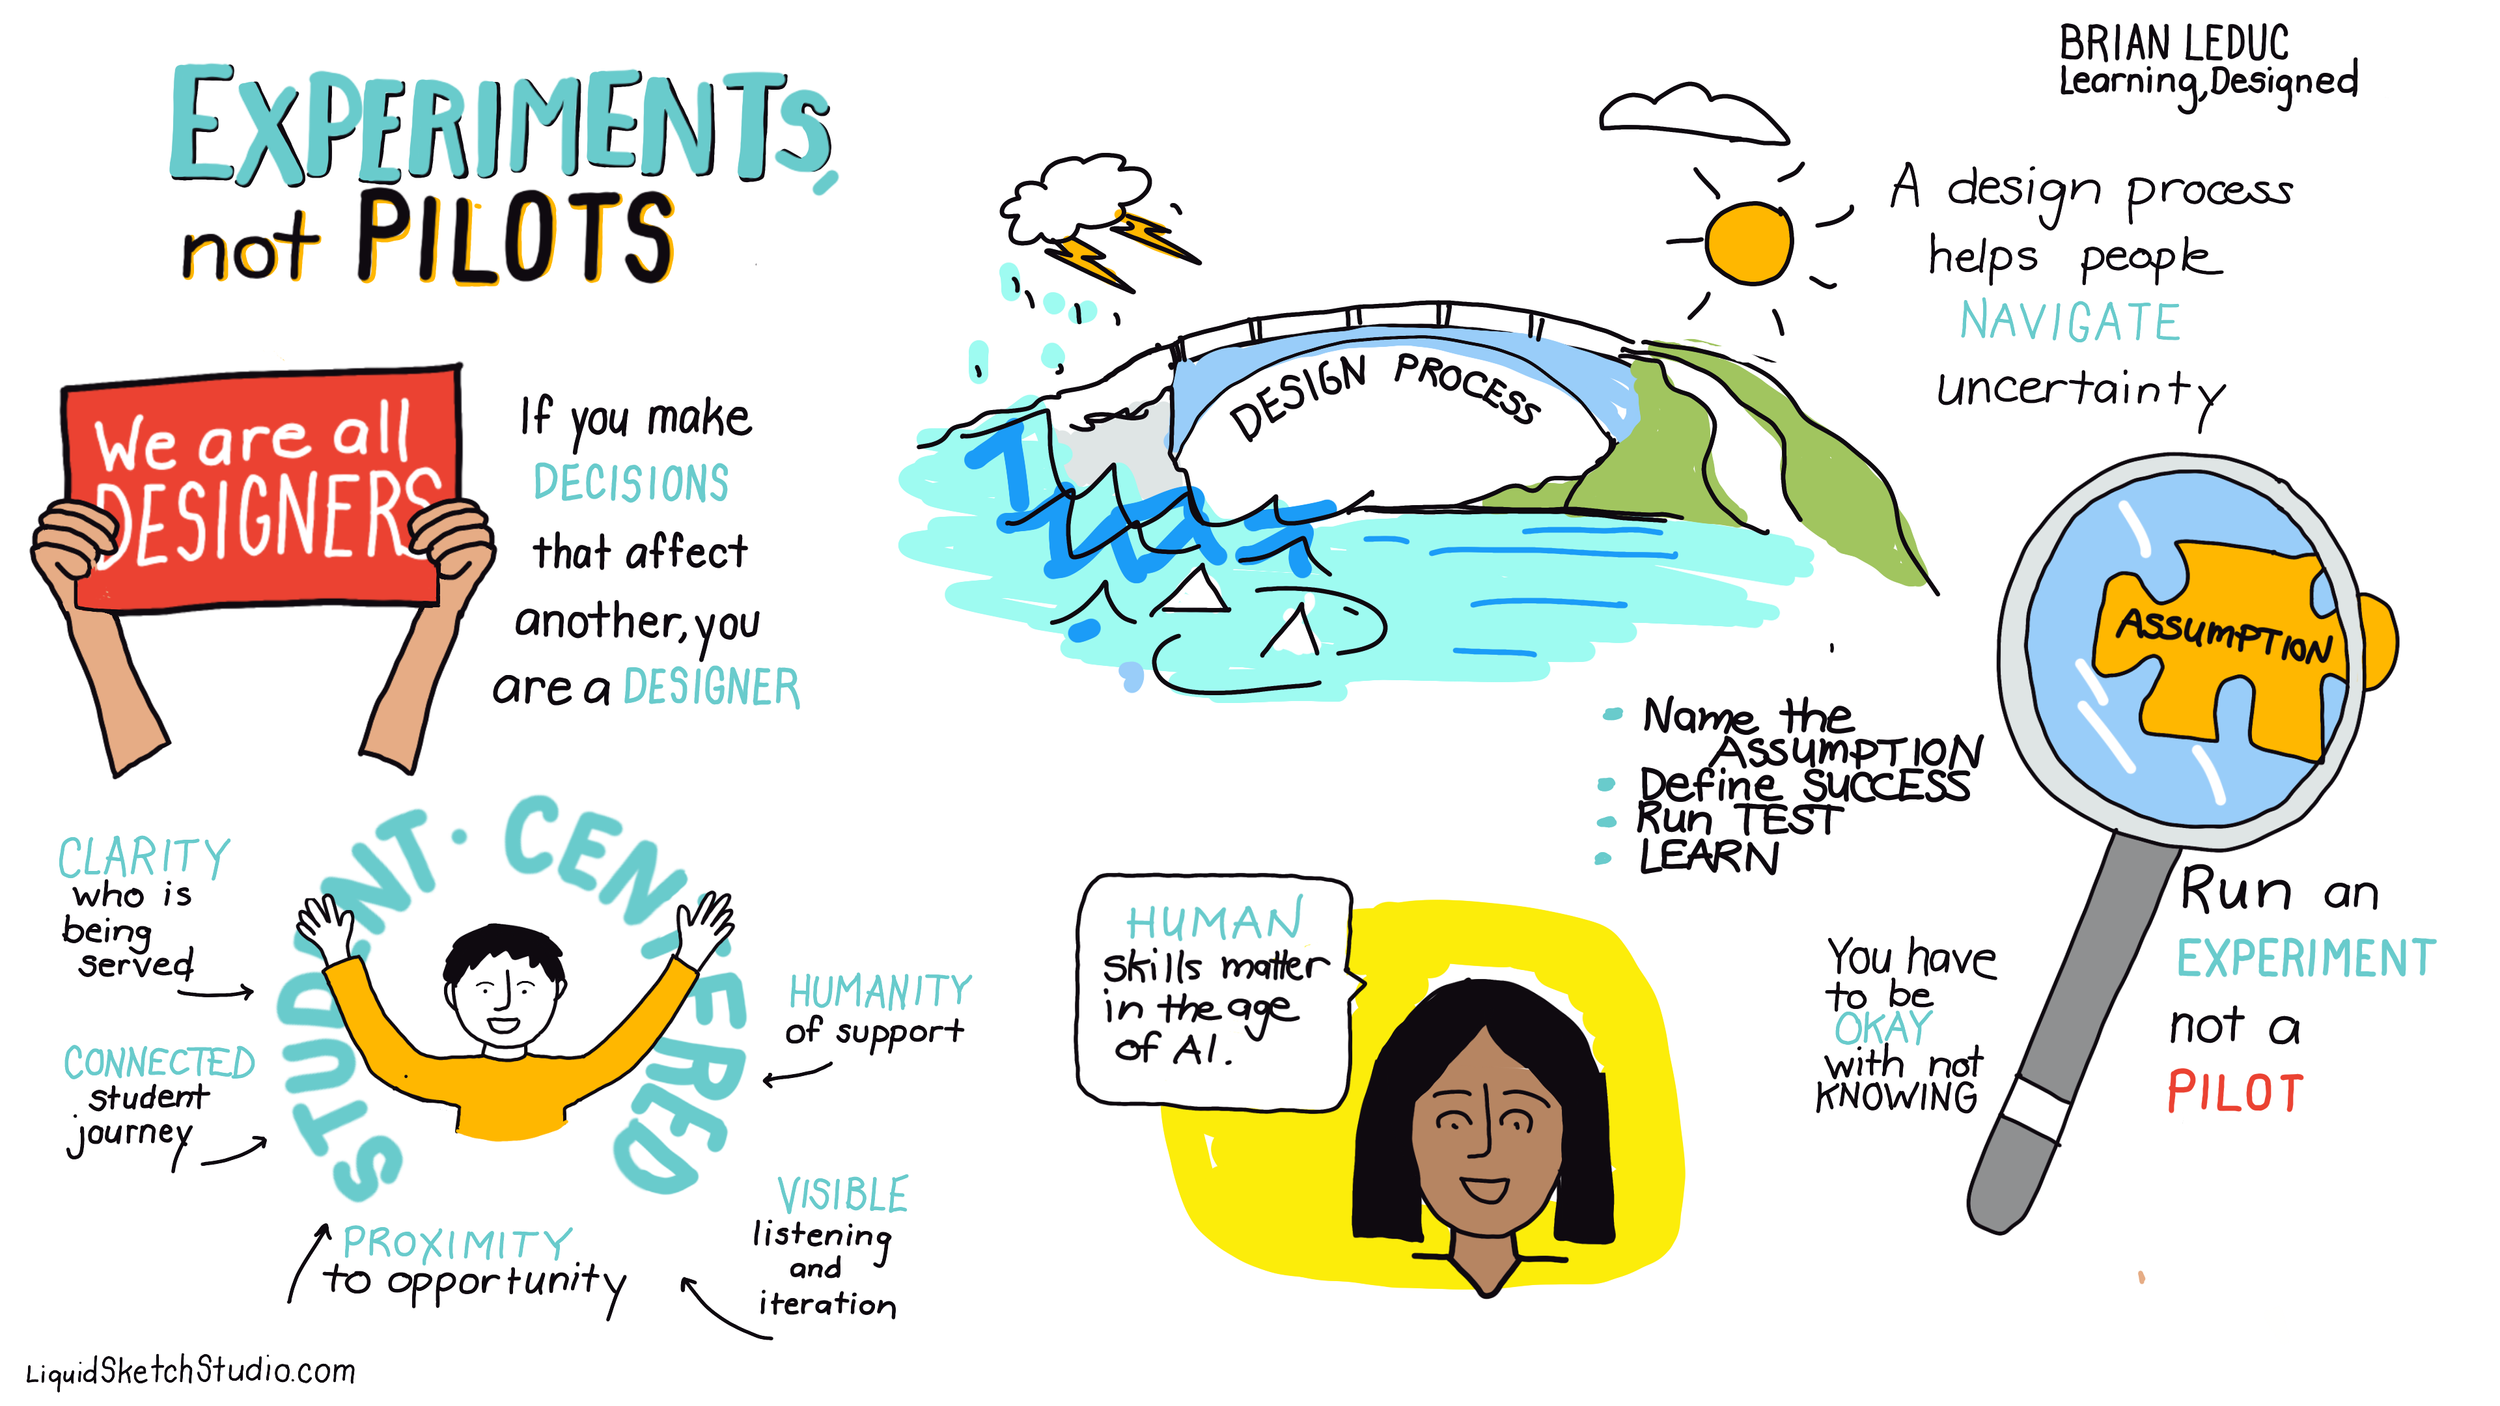 EXPERIMENTS,
not PILOTS
BRIAN LEDUC
Learning, Designed
We are all
DESIGNERS
If you make
DECISIONS
that affect
another, you
are a DESIGNER
DESIGN PROCESS
A design process
helps people
NAVIGATE
uncertainty
ASSUMPTION
Name the
ASSUMPTION
Define SUCCESS
Run TEST
LEARN
Run an
EXPERIMENT
not a
PILOT
You have
to be
OKAY
with not
KNOWING
HUMAN
skills matter
in the age
of AI.
STUDENT · CENTERED
CLARITY
who is
being
served
CONNECTED
student
journey
PROXIMITY
to opportunity
HUMANITY
of support
VISIBLE
listening
and
iteration
LiquidSketchStudio.com